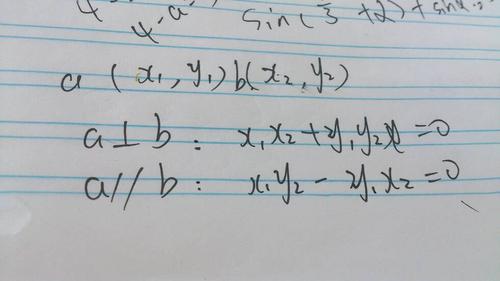 4 4^-a sin( +2)+sin
a (x₁,y₁) b(x₂,y₂)
a⊥b: x₁x₂+y₁y₂=0
a//b: x₁y₂-y₁x₂=0